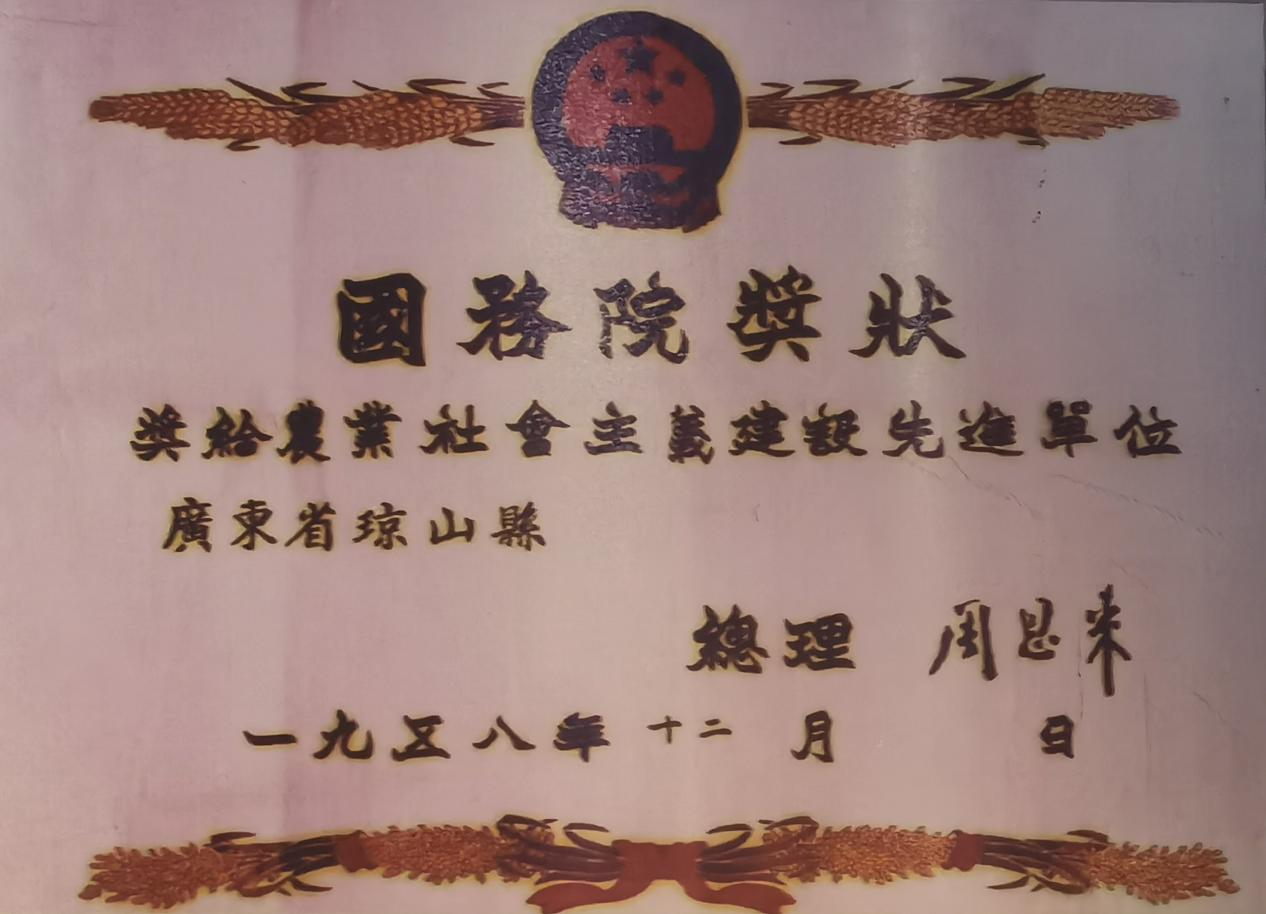 國務院獎狀
獎給農業社會主義建設先進單位
廣東省琼山縣
總理 周恩来
一九五八年十二月 日